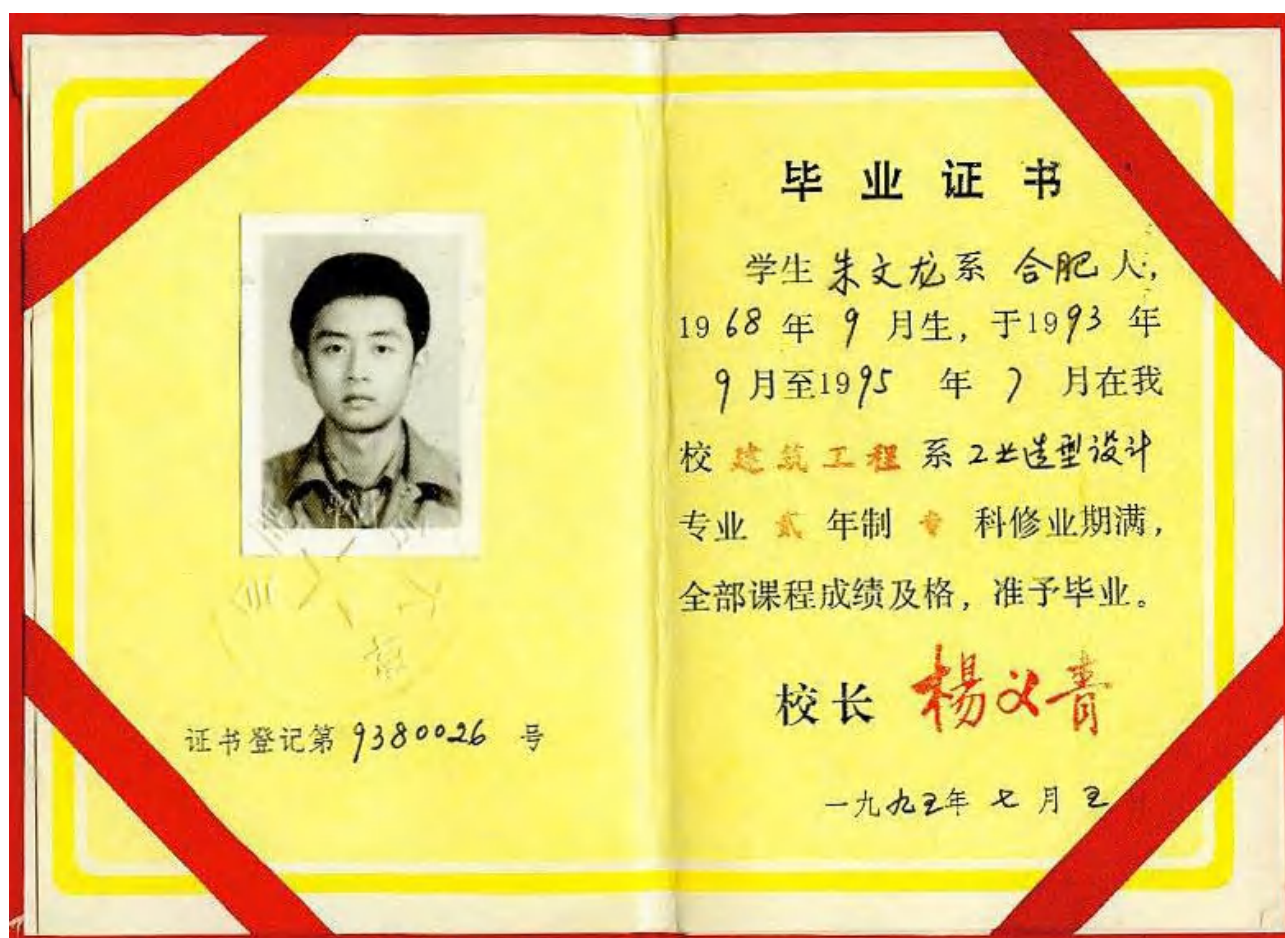 证书登记第 9380026 号
毕业证书
学生 朱文龙 系 合肥 人，
1968 年 9 月生，于1993 年
9 月至1995 年 7 月在我
校 建筑工程 系 工业造型设计
专业 贰 年制 专 科修业期满，
全部课程成绩及格，准予毕业。
校长 杨义青
一九九五年 七 月 五